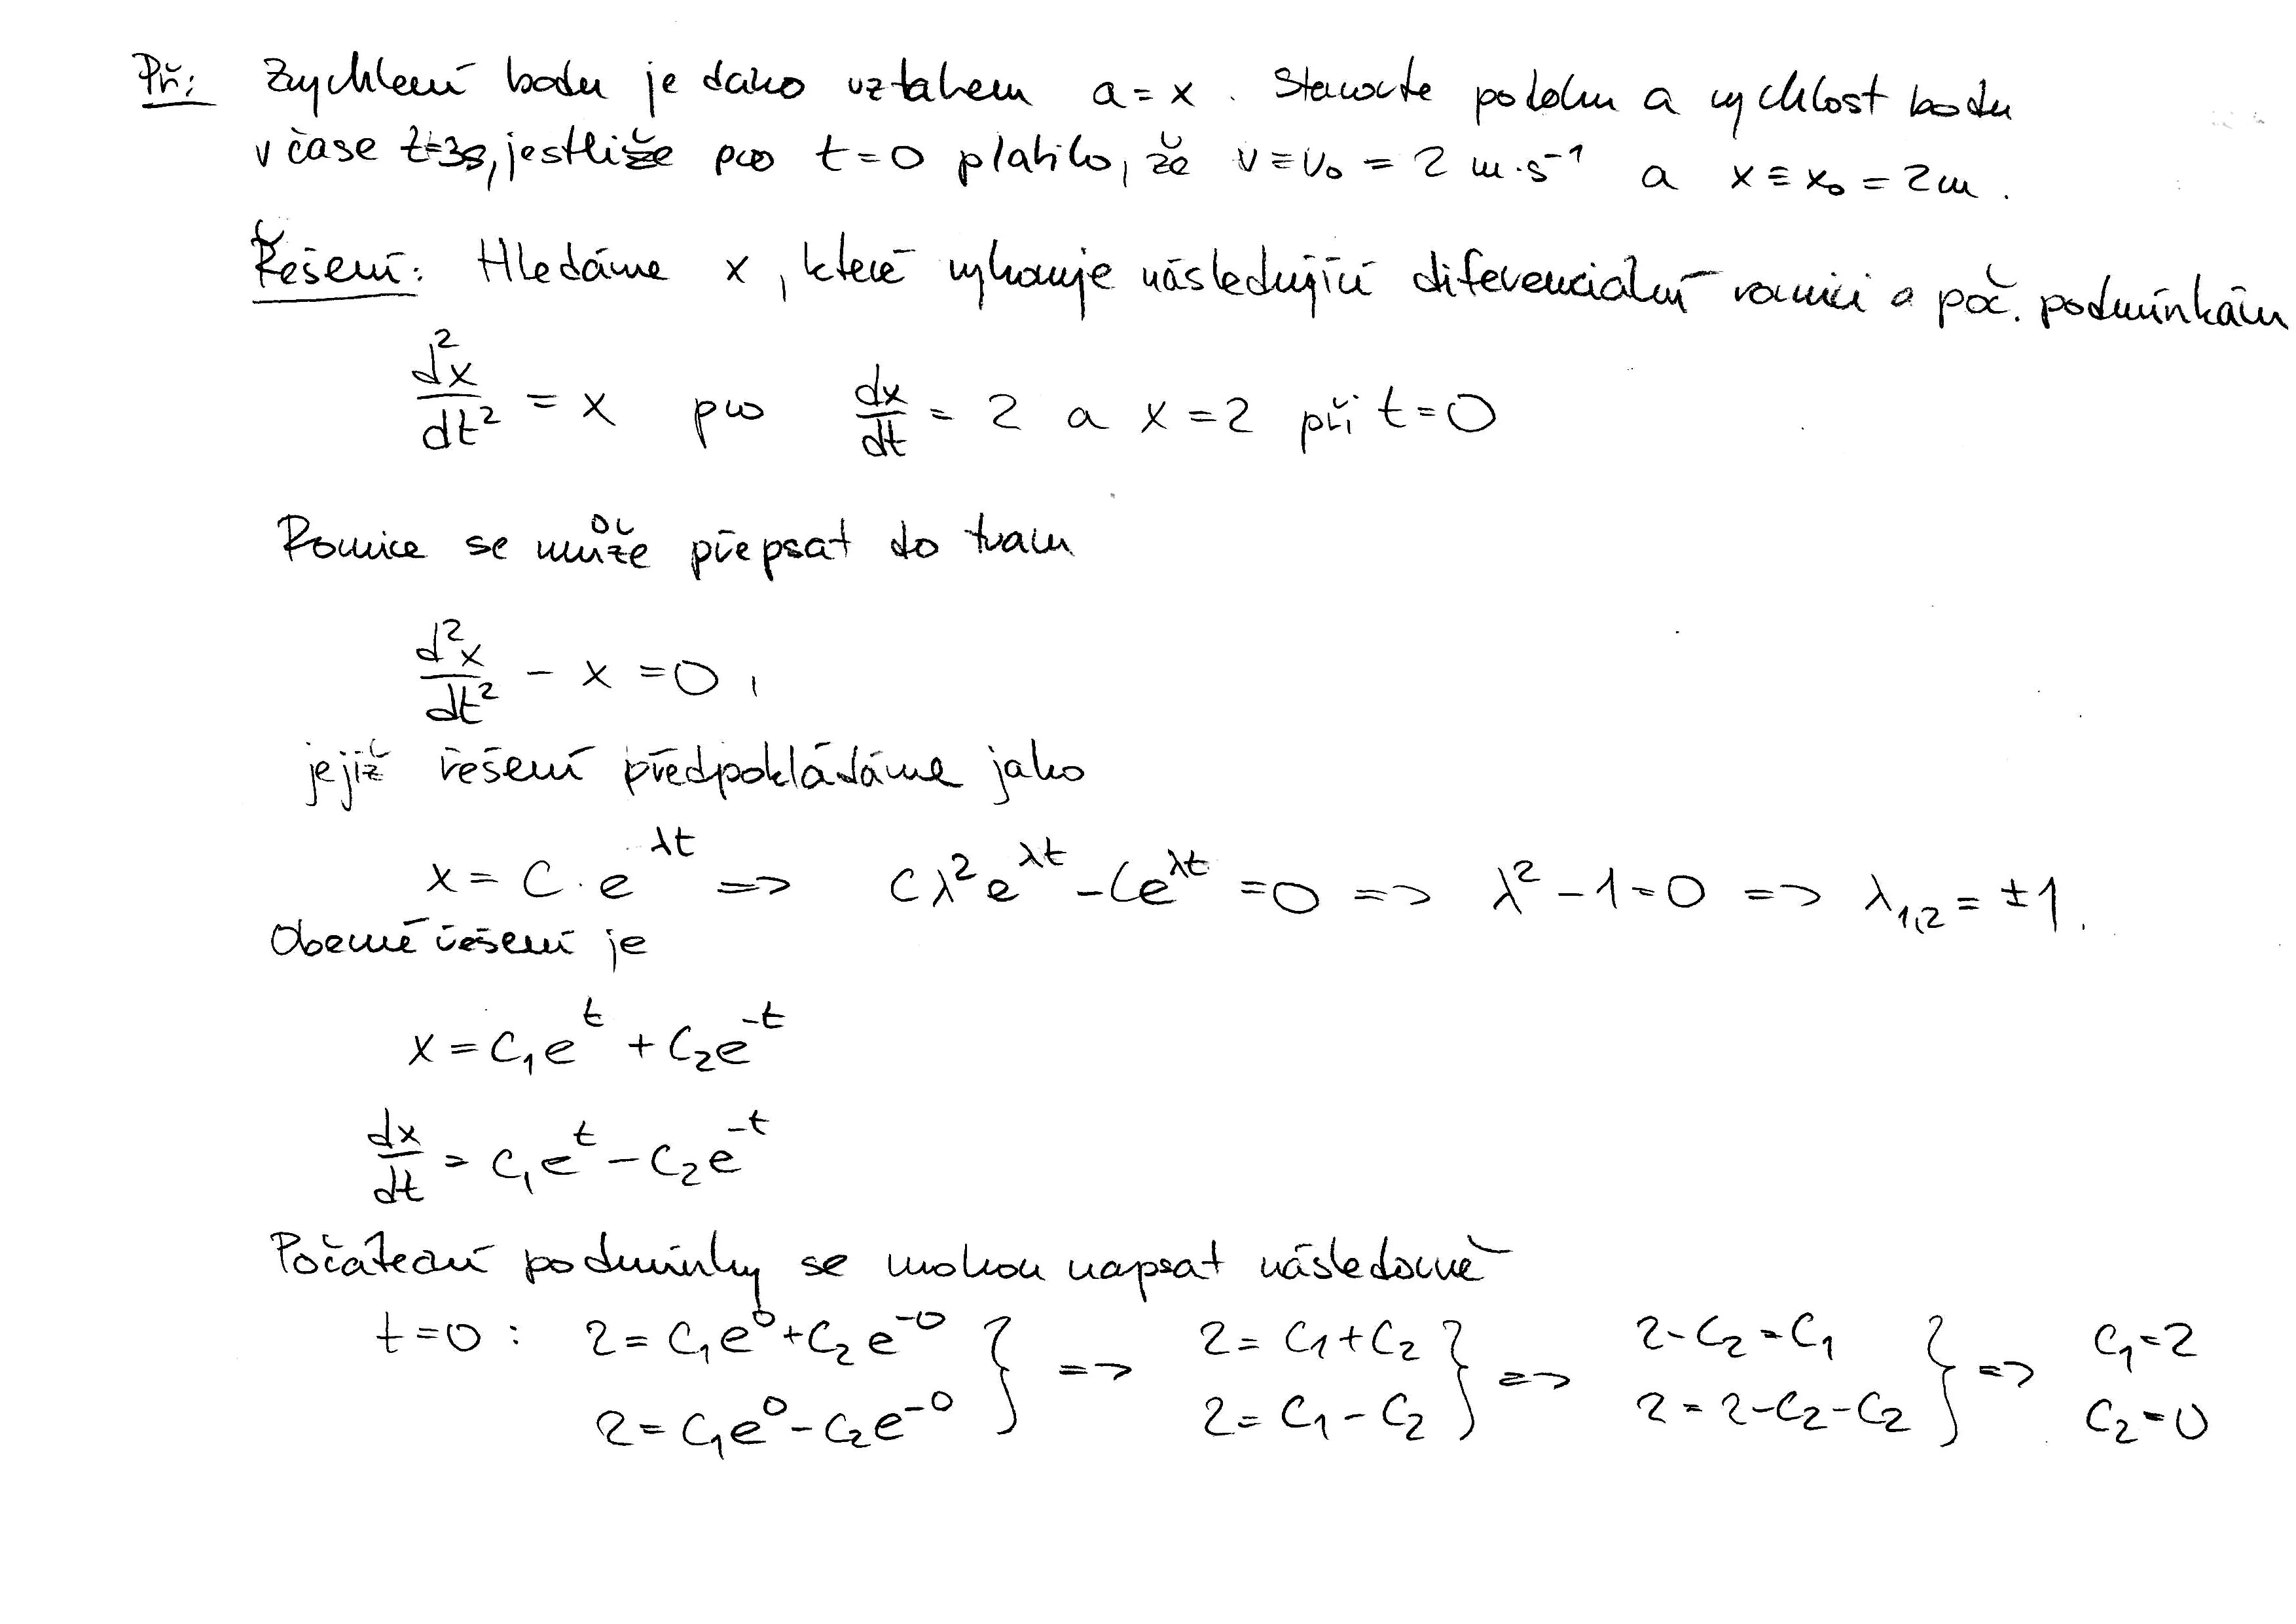 Př: Zrychlení bodu je dáno vztahem a = x . Stanovte polohu a rychlost bodu
v čase t=3s, jestliže pro t=0 platilo, že v ≡ v₀ = 2 m·s⁻¹ a x ≡ x₀ = 2m .
Řešení: Hledáme x, které vyhovuje následující diferenciální rovnici a poč. podmínkám
d²x/dt² = x pro dx/dt = 2 a x = 2 při t=0
Rovnice se může přepsat do tvaru
d²x/dt² - x = 0 ,
jejíž řešení předpokládáme jako
x = C · e^λt => Cλ²e^λt - Ce^λt = 0 => λ² - 1 = 0 => λ₁,₂ = ±1 .
Obecné řešení je
x = C₁e^t + C₂e^-t
dx/dt = C₁e^t - C₂e^-t
Počáteční podmínky se mohou napsat následovně
t=0 : 2 = C₁e⁰ + C₂e⁻⁰ } => 2 = C₁ + C₂ } => 2 - C₂ = C₁ } => C₁ = 2
2 = C₁e⁰ - C₂e⁻⁰ 2 = C₁ - C₂ 2 = 2 - C₂ - C₂ C₂ = 0